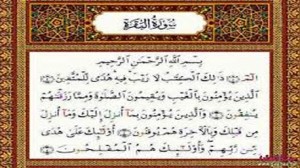 سُورَةُ البَقَرَةِ
بِسْمِ اللَّهِ الرَّحْمَٰنِ الرَّحِيمِ
الٓمٓ ۝١ ذَٰلِكَ الْكِتَٰبُ لَا رَيْبَ فِيهِ هُدًى لِّلْمُتَّقِينَ ۝٢
الَّذِينَ يُؤْمِنُونَ بِالْغَيْبِ وَيُقِيمُونَ الصَّلَوٰةَ وَمِمَّا رَزَقْنَٰهُمْ
يُنفِقُونَ ۝٣ وَالَّذِينَ يُؤْمِنُونَ بِمَا أُنزِلَ إِلَيْكَ وَمَا أُنزِلَ
مِن قَبْلِكَ وَبِالْءَاخِرَةِ هُمْ يُوقِنُونَ ۝٤ أُولَٰئِكَ عَلَىٰ هُدًى
مِّن رَّبِّهِمْ وَأُولَٰئِكَ هُمُ الْمُفْلِحُونَ ۝٥